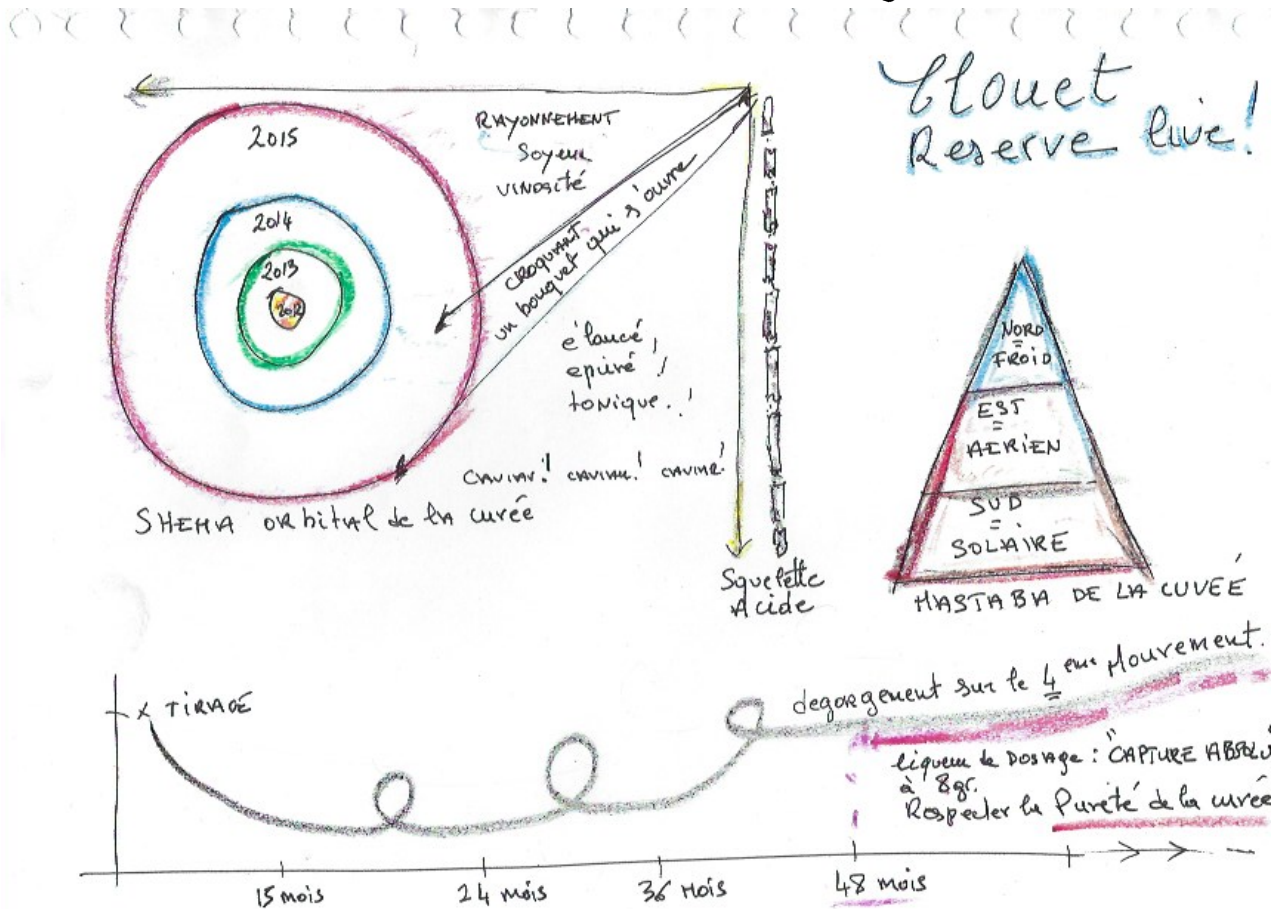 Clouet
Reserve live!
2015
2014
2013
2012
RAYONNEMENT
Soyeux
VINOSITÉ
CROQUANT
un bouquet qui s'ouvre
élancé,
épuré,
tonique.!
CAVIAR! CAVIAR! CAVIAR!
SHEMA ORbital de la cuvée
Squelette
Acide
NORD
=
FROID
EST
=
AERIEN
SUD
=
SOLAIRE
MASTABA DE LA CUVEÉ
x TIRAGE
degorgement sur le 4eme Mouvement.
liqueur de DOSAGE: "CAPTURE ABSOLU
à 8gr.
Respecter la Pureté de la cuvée
15 mois
24 mois
36 Mois
48 mois